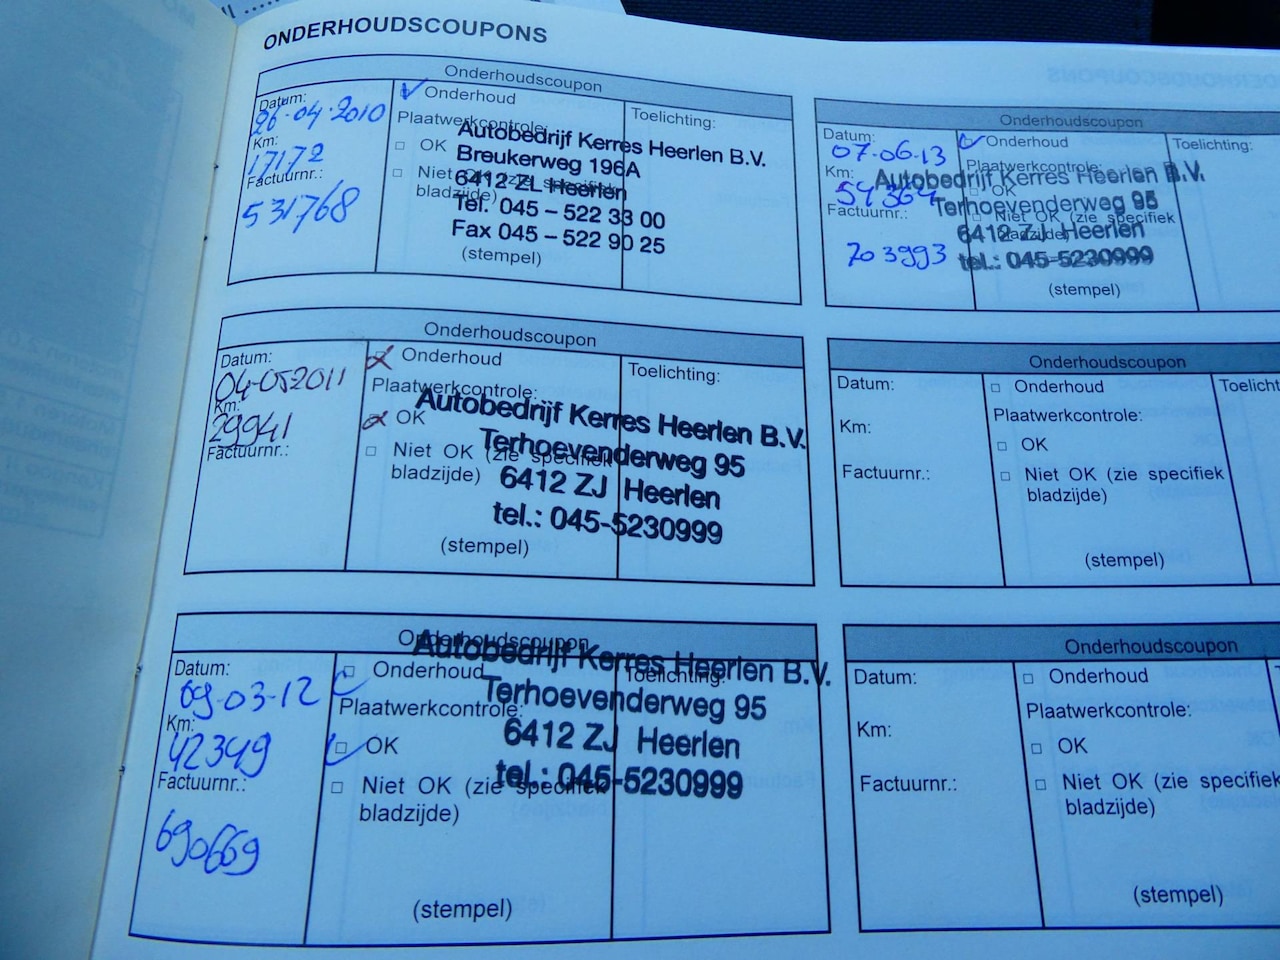 ONDERHOUDSCOUPONS
Onderhoudscoupon
Datum:
26-04-2010
Km:
17172
Factuurnr.:
531768
Onderhoud
Plaatwerkcontrole:
OK
Niet OK (zie specifiek
bladzijde)
Toelichting:
Autobedrijf Kerres Heerlen B.V.
Breukerweg 196A
6412 ZL Heerlen
Tel. 045 – 522 33 00
Fax 045 – 522 90 25
(stempel)
Onderhoudscoupon
Datum:
07-06-13
Km:
54364
Factuurnr.:
703993
Onderhoud
Plaatwerkcontrole:
OK
Niet OK (zie specifiek
bladzijde)
Toelichting:
Autobedrijf Kerres Heerlen B.V.
Terhoevenderweg 95
6412 ZJ Heerlen
tel.: 045-5230999
(stempel)
Onderhoudscoupon
Datum:
04-052011
Km:
29941
Factuurnr.:
Onderhoud
Plaatwerkcontrole:
OK
Niet OK (zie specifiek
bladzijde)
Toelichting:
Autobedrijf Kerres Heerlen B.V.
Terhoevenderweg 95
6412 ZJ Heerlen
tel.: 045-5230999
(stempel)
Onderhoudscoupon
Datum:
Km:
Factuurnr.:
Onderhoud
Plaatwerkcontrole:
OK
Niet OK (zie specifiek
bladzijde)
Toelicht
(stempel)
Onderhoudscoupon
Datum:
09-03-12
Km:
42349
Factuurnr.:
690669
Onderhoud
Plaatwerkcontrole:
OK
Niet OK (zie specifiek
bladzijde)
Toelichting:
Autobedrijf Kerres Heerlen B.V.
Terhoevenderweg 95
6412 ZJ Heerlen
tel.: 045-5230999
(stempel)
Onderhoudscoupon
Datum:
Km:
Factuurnr.:
Onderhoud
Plaatwerkcontrole:
OK
Niet OK (zie specifiek
bladzijde)
(stempel)